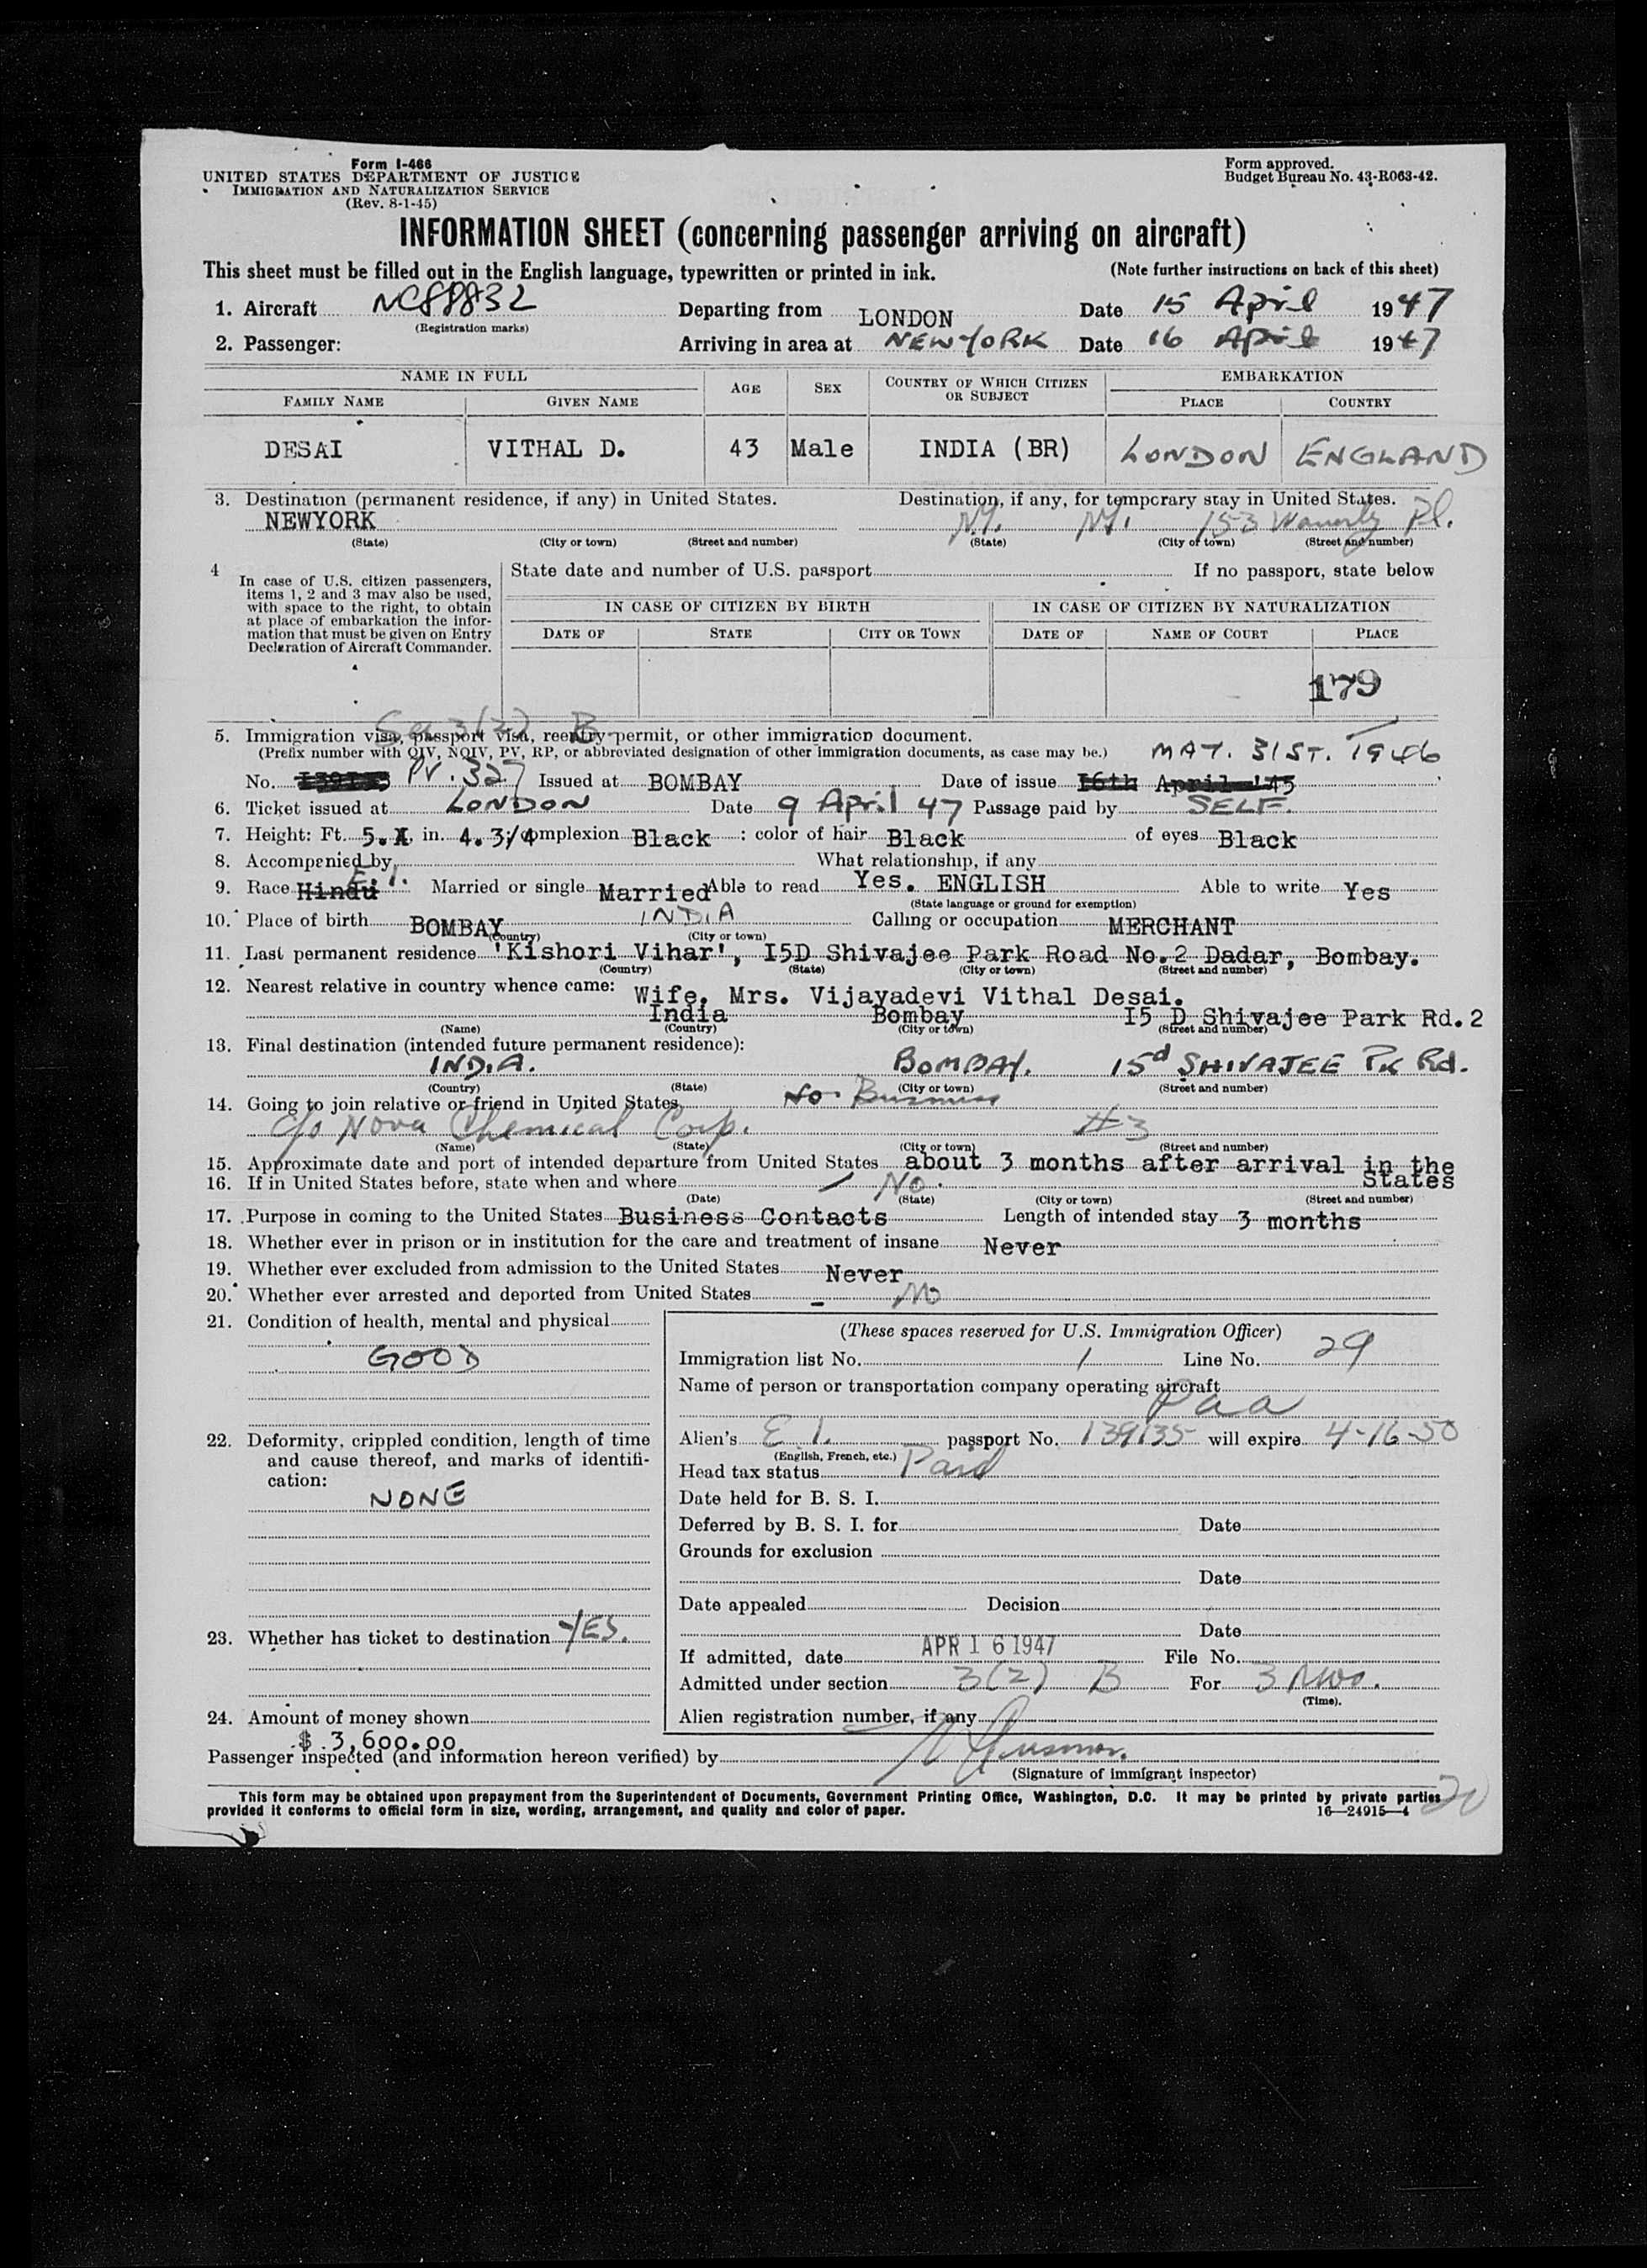 Form I-466
UNITED STATES DEPARTMENT OF JUSTICE
IMMIGRATION AND NATURALIZATION SERVICE
(Rev. 8-1-45)
Form approved.
Budget Bureau No. 43-R063-42.
INFORMATION SHEET (concerning passenger arriving on aircraft)
This sheet must be filled out in the English language, typewritten or printed in ink. (Note further instructions on back of this sheet)
1. Aircraft NC88832 Departing from LONDON Date 15 April 1947
(Registration marks)
2. Passenger: Arriving in area at NEW YORK Date 16 April 1947
NAME IN FULL AGE SEX COUNTRY OF WHICH CITIZEN OR SUBJECT EMBARKATION
FAMILY NAME GIVEN NAME PLACE COUNTRY
DESAI VITHAL D. 43 Male INDIA (BR) LONDON ENGLAND
3. Destination (permanent residence, if any) in United States. Destination, if any, for temporary stay in United States.
NEWYORK N.Y. N.Y. 153 Waverly Pl.
(State) (City or town) (Street and number) (State) (City or town) (Street and number)
4 In case of U.S. citizen passengers, items 1, 2 and 3 may also be used, with space to the right, to obtain at place of embarkation the information that must be given on Entry Declaration of Aircraft Commander.
State date and number of U.S. passport If no passport, state below
IN CASE OF CITIZEN BY BIRTH IN CASE OF CITIZEN BY NATURALIZATION
DATE OF STATE CITY OR TOWN DATE OF NAME OF COURT PLACE
179
Sec 3(2) B
5. Immigration visa, passport visa, reentry permit, or other immigration document.
(Prefix number with QIV, NQIV, PV, RP, or abbreviated designation of other immigration documents, as case may be.) MAY. 31ST. 1946
No. PV. 327 Issued at BOMBAY Date of issue 16th April '45
6. Ticket issued at LONDON Date 9 April 47 Passage paid by SELF.
7. Height: Ft. 5. in. 4. 3/4 omplexion Black : color of hair Black of eyes Black
8. Accompanied by What relationship, if any
9. Race Hindu E. I. Married or single Married Able to read Yes. ENGLISH Able to write Yes
(State language or ground for exemption)
10. Place of birth BOMBAY INDIA Calling or occupation MERCHANT
(Country) (City or town)
11. Last permanent residence 'Kishori Vihar', I5D Shivajee Park Road No.2 Dadar, Bombay.
(Country) (State) (City or town) (Street and number)
12. Nearest relative in country whence came: Wife. Mrs. Vijayadevi Vithal Desai.
India Bombay I5 D Shivajee Park Rd.2
(Name) (Country) (City or town) (Street and number)
13. Final destination (intended future permanent residence):
INDIA. BOMBAY. 15d SHIVAJEE PK Rd.
(Country) (State) (City or town) (Street and number)
14. Going to join relative or friend in United States No. Business
c/o Nova Chemical Corp. #3
(Name) (State) (City or town) (Street and number)
15. Approximate date and port of intended departure from United States about 3 months after arrival in the States
16. If in United States before, state when and where No.
(Date) (State) (City or town) (Street and number)
17. Purpose in coming to the United States Business Contacts Length of intended stay 3 months
18. Whether ever in prison or in institution for the care and treatment of insane Never
19. Whether ever excluded from admission to the United States Never
20. Whether ever arrested and deported from United States No
21. Condition of health, mental and physical
GOOD
22. Deformity, crippled condition, length of time and cause thereof, and marks of identification:
NONE
23. Whether has ticket to destination YES.
24. Amount of money shown
$ 3,600.00
(These spaces reserved for U.S. Immigration Officer)
Immigration list No. 1 Line No. 29
Name of person or transportation company operating aircraft
Paa
Alien's E. I. passport No. 139135 will expire 4-16-50
(English, French, etc.)
Head tax status Paid
Date held for B. S. I.
Deferred by B. S. I. for Date
Grounds for exclusion
Date
Date appealed Decision
Date
If admitted, date APR 16 1947 File No.
Admitted under section 3(2) B For 3 Mos.
(Time).
Alien registration number, if any
Passenger inspected (and information hereon verified) by
(Signature of immigrant inspector)
This form may be obtained upon prepayment from the Superintendent of Documents, Government Printing Office, Washington, D.C. It may be printed by private parties
provided it conforms to official form in size, wording, arrangement, and quality and color of paper. 16—24915—4
20